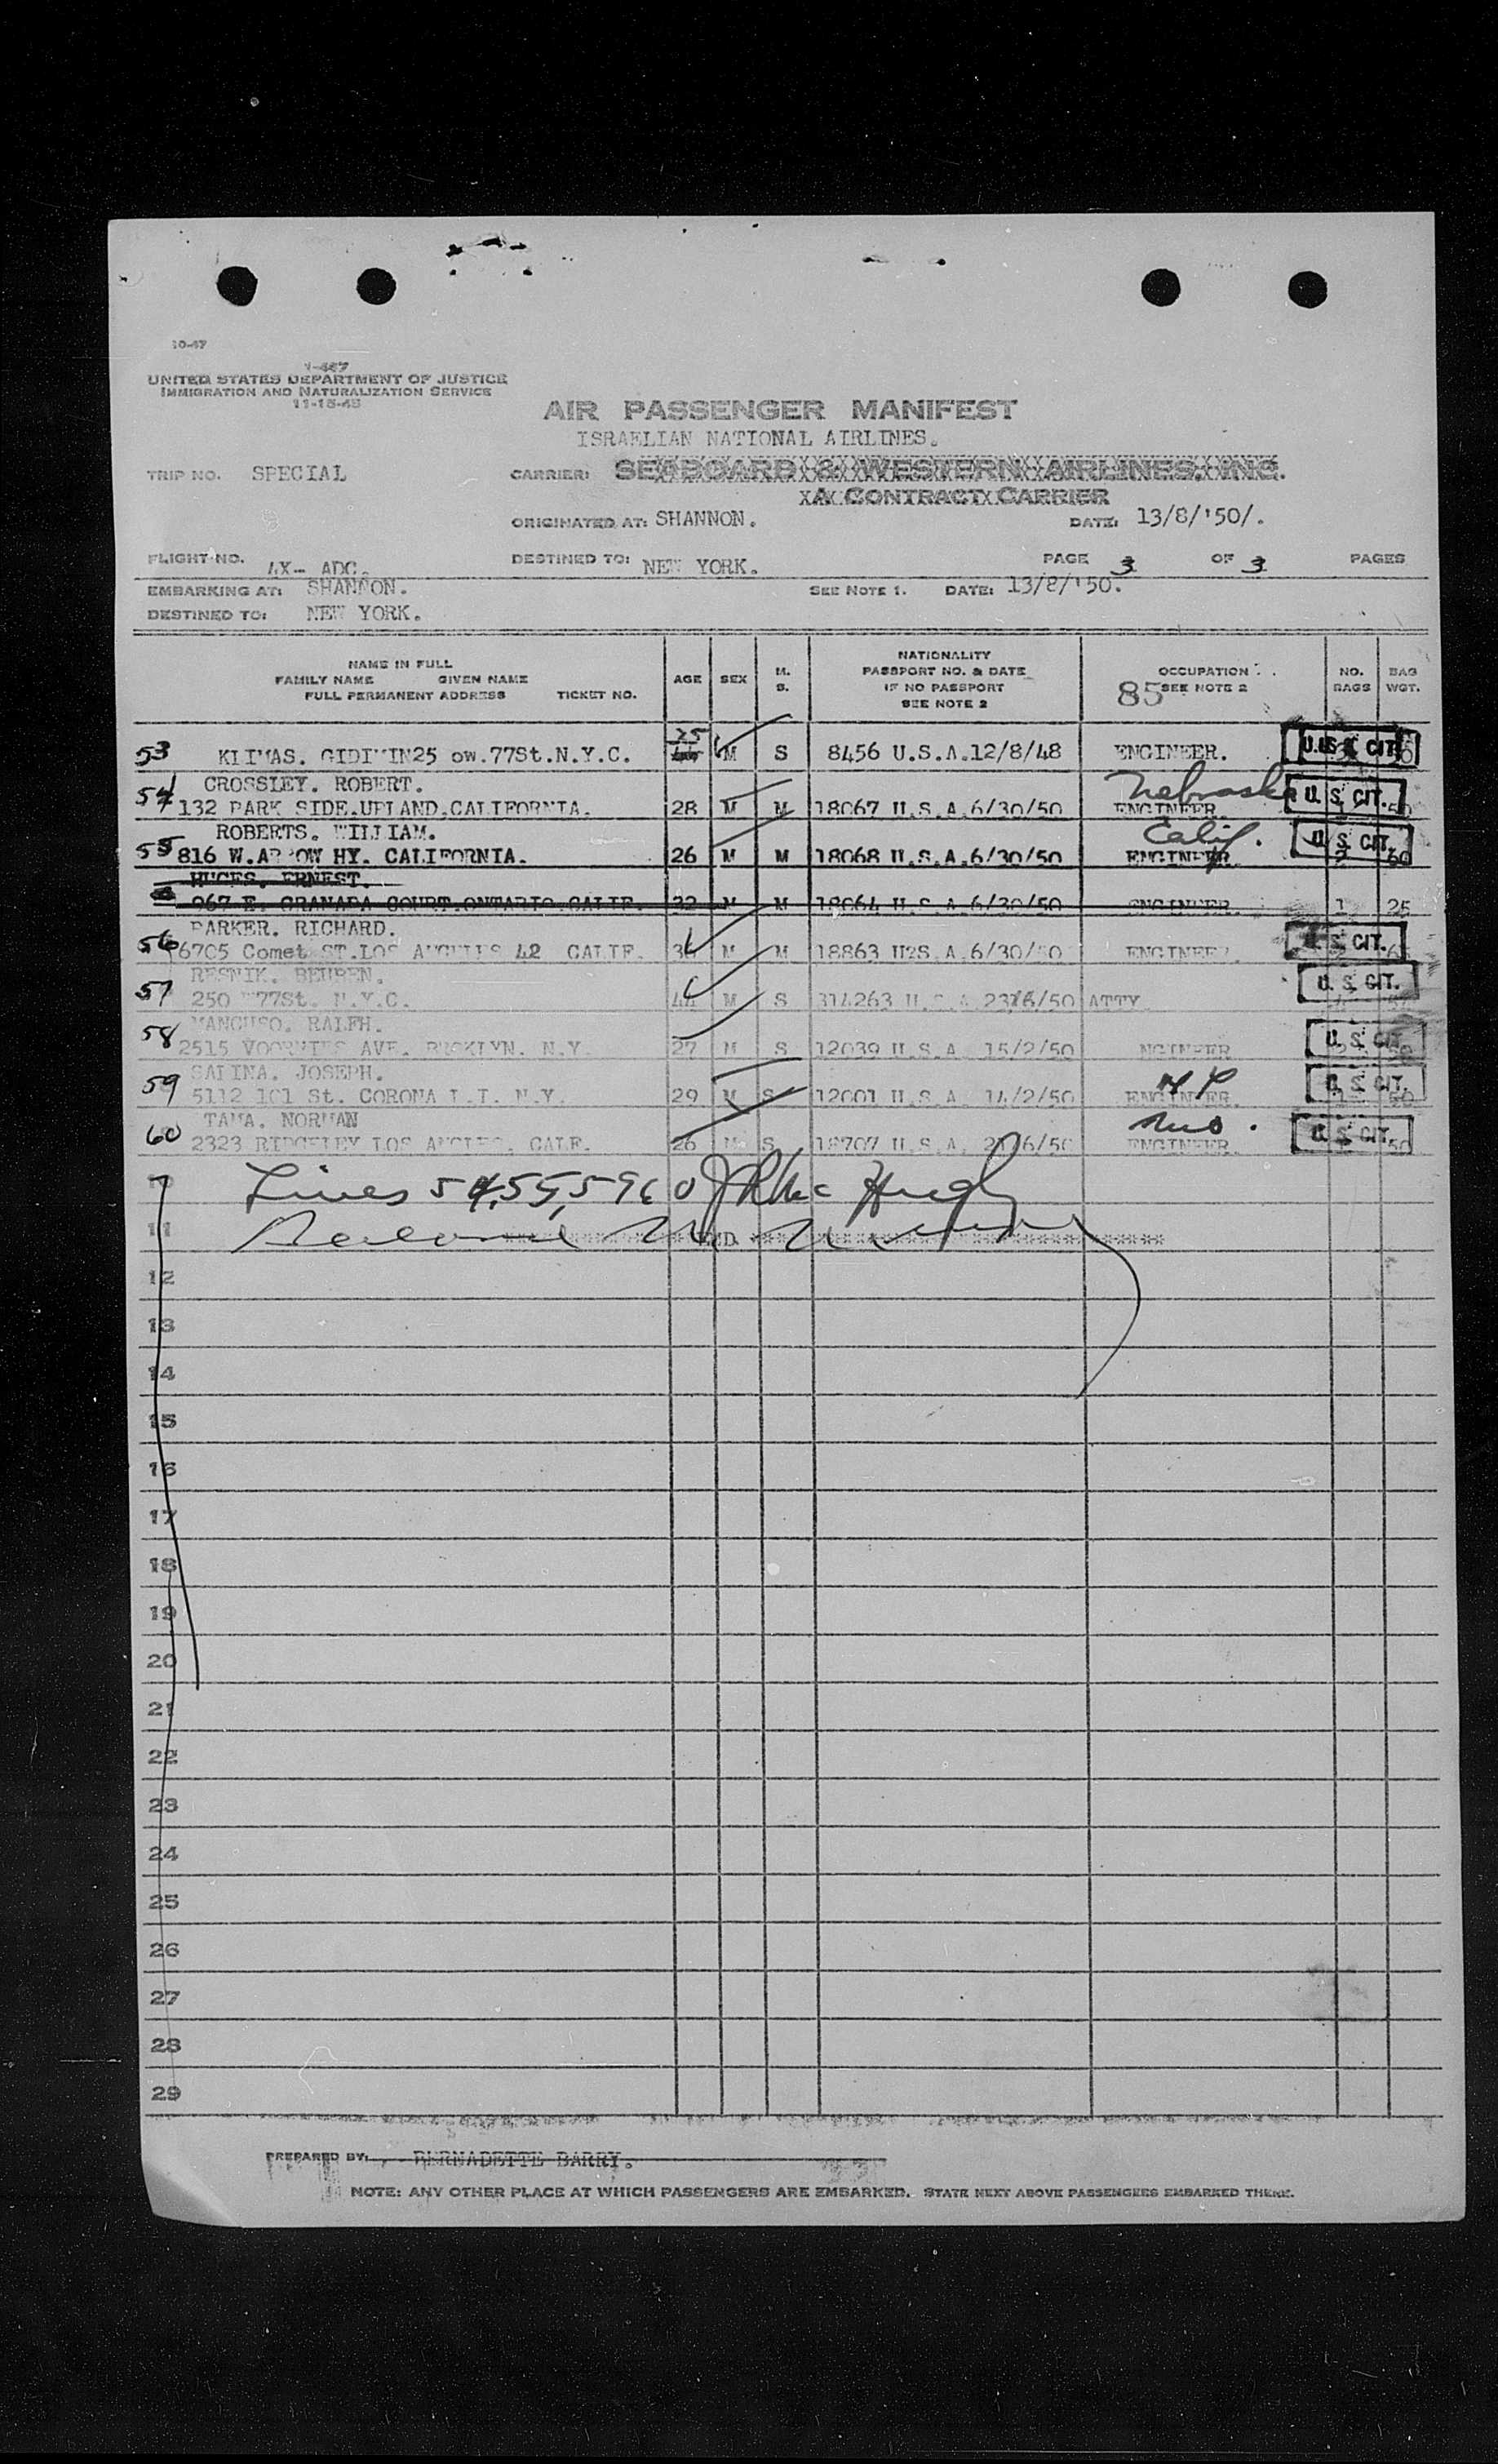 10-47
1-467
UNITED STATES DEPARTMENT OF JUSTICE
IMMIGRATION AND NATURALIZATION SERVICE
11-15-45
AIR PASSENGER MANIFEST
ISRAELIAN NATIONAL AIRLINES.
TRIP NO. SPECIAL CARRIER: SEABOARD & WESTERN AIRLINES. INC.
A CONTRACT CARRIER
ORIGINATED AT: SHANNON. DATE: 13/8/'50/.
FLIGHT NO. 4X- ADC. DESTINED TO: NEW YORK. PAGE 3 OF 3 PAGES
EMBARKING AT: SHANNON. SEE NOTE 1. DATE: 13/8/'50.
DESTINED TO: NEW YORK.
NAME IN FULL
FAMILY NAME GIVEN NAME
FULL PERMANENT ADDRESS TICKET NO.
AGE SEX M. S.
NATIONALITY
PASSPORT NO. & DATE
IF NO PASSPORT
SEE NOTE 2
OCCUPATION
85 SEE NOTE 2
NO. BAGS
BAG WGT.
25
53 KLIMAS. GIDIMIN25 ow.77St.N.Y.C. M S 8456 U.S.A.12/8/48 ENGINEER. U.S. CIT.
CROSSLEY. ROBERT. Nebraska
54 132 PARK SIDE.UPLAND.CALIFORNIA. 28 M M 18067 U.S.A.6/30/50 ENGINEER. U.S. CIT.
ROBERTS. WILLIAM. Calif.
55 816 W.ARROW HY. CALIFORNIA. 26 M M 18068 U.S.A.6/30/50 ENGINEER. U.S. CIT. 2 60
HUGES. ERNEST.
967 E. GRANADA COURT.ONTARIO.CALIF. 32 M M 18064 U.S.A.6/30/50 ENGINEER. 1 25
PARKER. RICHARD.
56 6705 Comet ST.LOS ANGELES 42 CALIF. M M 18863 U?S.A.6/30/50 ENGINEER. U.S. CIT.
RESNIK. BEUREN.
57 250 W77St. N.Y.C. 44 M S 314263 U.S.A. /6/50 ATTY U.S. CIT.
MANCUSO. RALPH.
58 2515 VOORHIES AVE. BROKLYN. N.Y. 27 M S 12039 U.S.A. 15/2/50 ENGINEER U.S. CIT.
SALINA. JOSEPH.
59 5112 101 St. CORONA L.I. N.Y. 29 M S 12001 U.S.A. 14/2/50 ENGINEER. U.S. CIT.
TAMA. NORMAN
60 2323 RIDGELEY LOS ANGLES. CALF. 26 M S 18707 U.S.A. /6/50 ENGINEER. U.S. CIT. 50
10 Lines 54,55,59,60
11 END
12
13
14
15
16
17
18
19
20
21
22
23
24
25
26
27
28
29
PREPARED BY: BERNADETTE BARRY.
NOTE: ANY OTHER PLACE AT WHICH PASSENGERS ARE EMBARKED. STATE NEXT ABOVE PASSENGERS EMBARKED THERE.